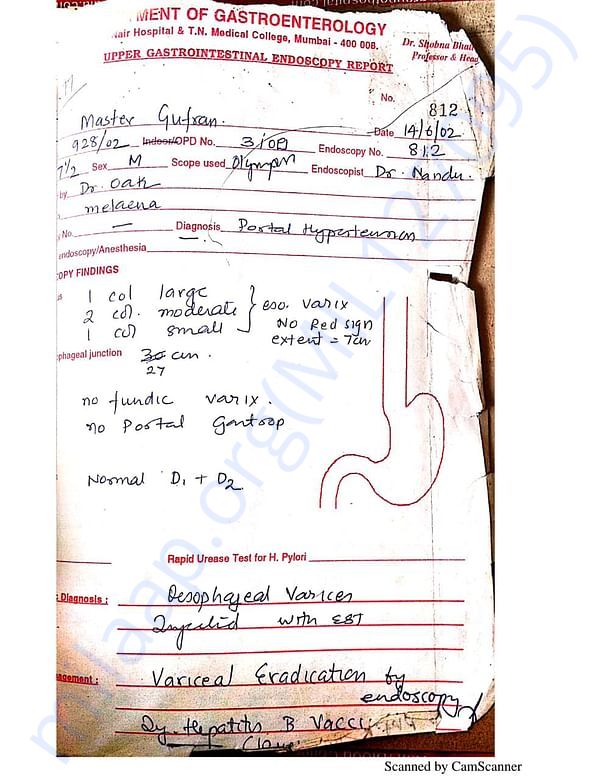 MENT OF GASTROENTEROLOGY
Nair Hospital & T.N. Medical College, Mumbai - 400 008.
Dr. Shobna Bhat
Professor & Head
UPPER GASTROINTESTINAL ENDOSCOPY REPORT
No. 812
Master Gufran.
Date 14/6/02
928/02 Indoor/OPD No. Endoscopy No. 812
7 1/2 Sex M Scope used Olympus Endoscopist Dr. Nandu.
by Dr. Oak
melaena
No. — Diagnosis Portal Hypertension
endoscopy/Anesthesia
OPY FINDINGS
1 col large
2 col. moderate } eso. varix
1 col small
No Red sign
extent = 7cm
phageal junction 30 cm.
27
no fundic varix.
no Portal Gastrop
Normal D1 + D2
Rapid Urease Test for H. Pylori
Diagnosis : Oesophageal Varices
Injected with EST
agement : Variceal Eradication by
endoscopy
Hepatitis B Vacci
milaap.org(MIL1270995)
Scanned by CamScanner